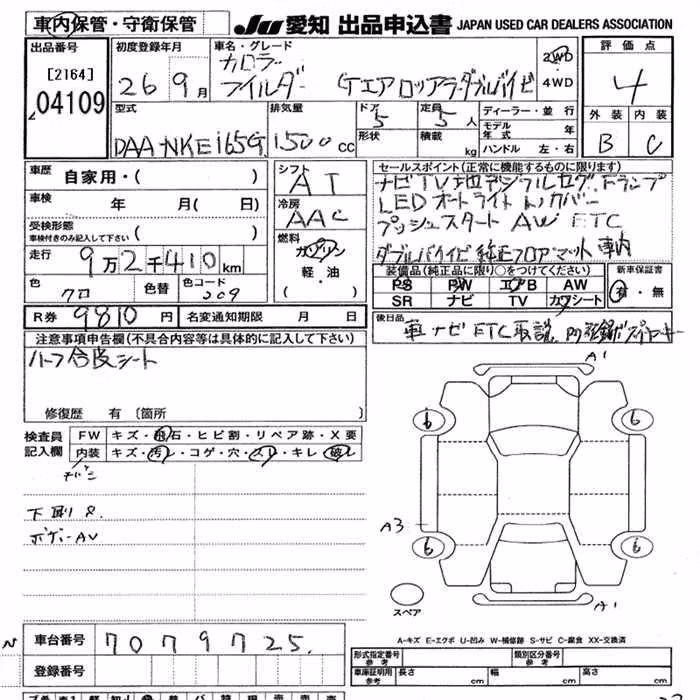 車内保管・守衛保管
JU 愛知 出品申込書 JAPAN USED CAR DEALERS ASSOCIATION
出品番号
[2164]
04109
初度登録年月
26 9月
車名・グレード
カローラ
フィルダー
Gエアロツアラーダブルバイビー
2WD
4WD
評価点
4
外装 内装
B C
型式
DAA-NKE165G
排気量
1500cc
ドア 5
形状
定員 5人
積載 kg
ディーラー・並行
モデル年式 年
ハンドル 左・右
車歴 自家用・( )
車検 年 月( 日)
受検形態
車検付きのみ記入して下さい ( )
走行 9万2千410km
色 クロ 色替 色コード 209
R券 9810円 名変通知期限 月 日
シフト
AT
冷房
AAC
燃料
ガソリン
軽・油
( )
セールスポイント(正常に機能するものに限ります)
ナビTV地デジフルセグ、Fランプ
LEDオートライト トノカバー
プッシュスタート AW ETC
ダブルバイビー 純正フロアマット 車内
装備品(純正品に限り○をつけてください)
PS PW エアB AW
SR ナビ TV カワシート
新車保証書
有・無
後日品
車 ナビ ETC 取説
注意事項申告欄(不具合内容等は具体的に記入して下さい)
ハーフ合皮シート
修復歴 有 〔箇所 〕
検査員
記入欄
FW キズ・飛石・ヒビ割・リペア跡・X要
内装 キズ・汚レ・コゲ・穴・スレ・キレ・破レ
下廻り
ボデーAU
A1
6
6
A3
6
6
スペア
A1
A-キズ E-エクボ U-凹み W-補修跡 S-サビ C-腐食 XX-交換済
車台番号 7079725
登録番号
形式指定番号
参考
類別区分番号
参考
車庫証明用
参考
長さ cm 幅 cm 高さ cm